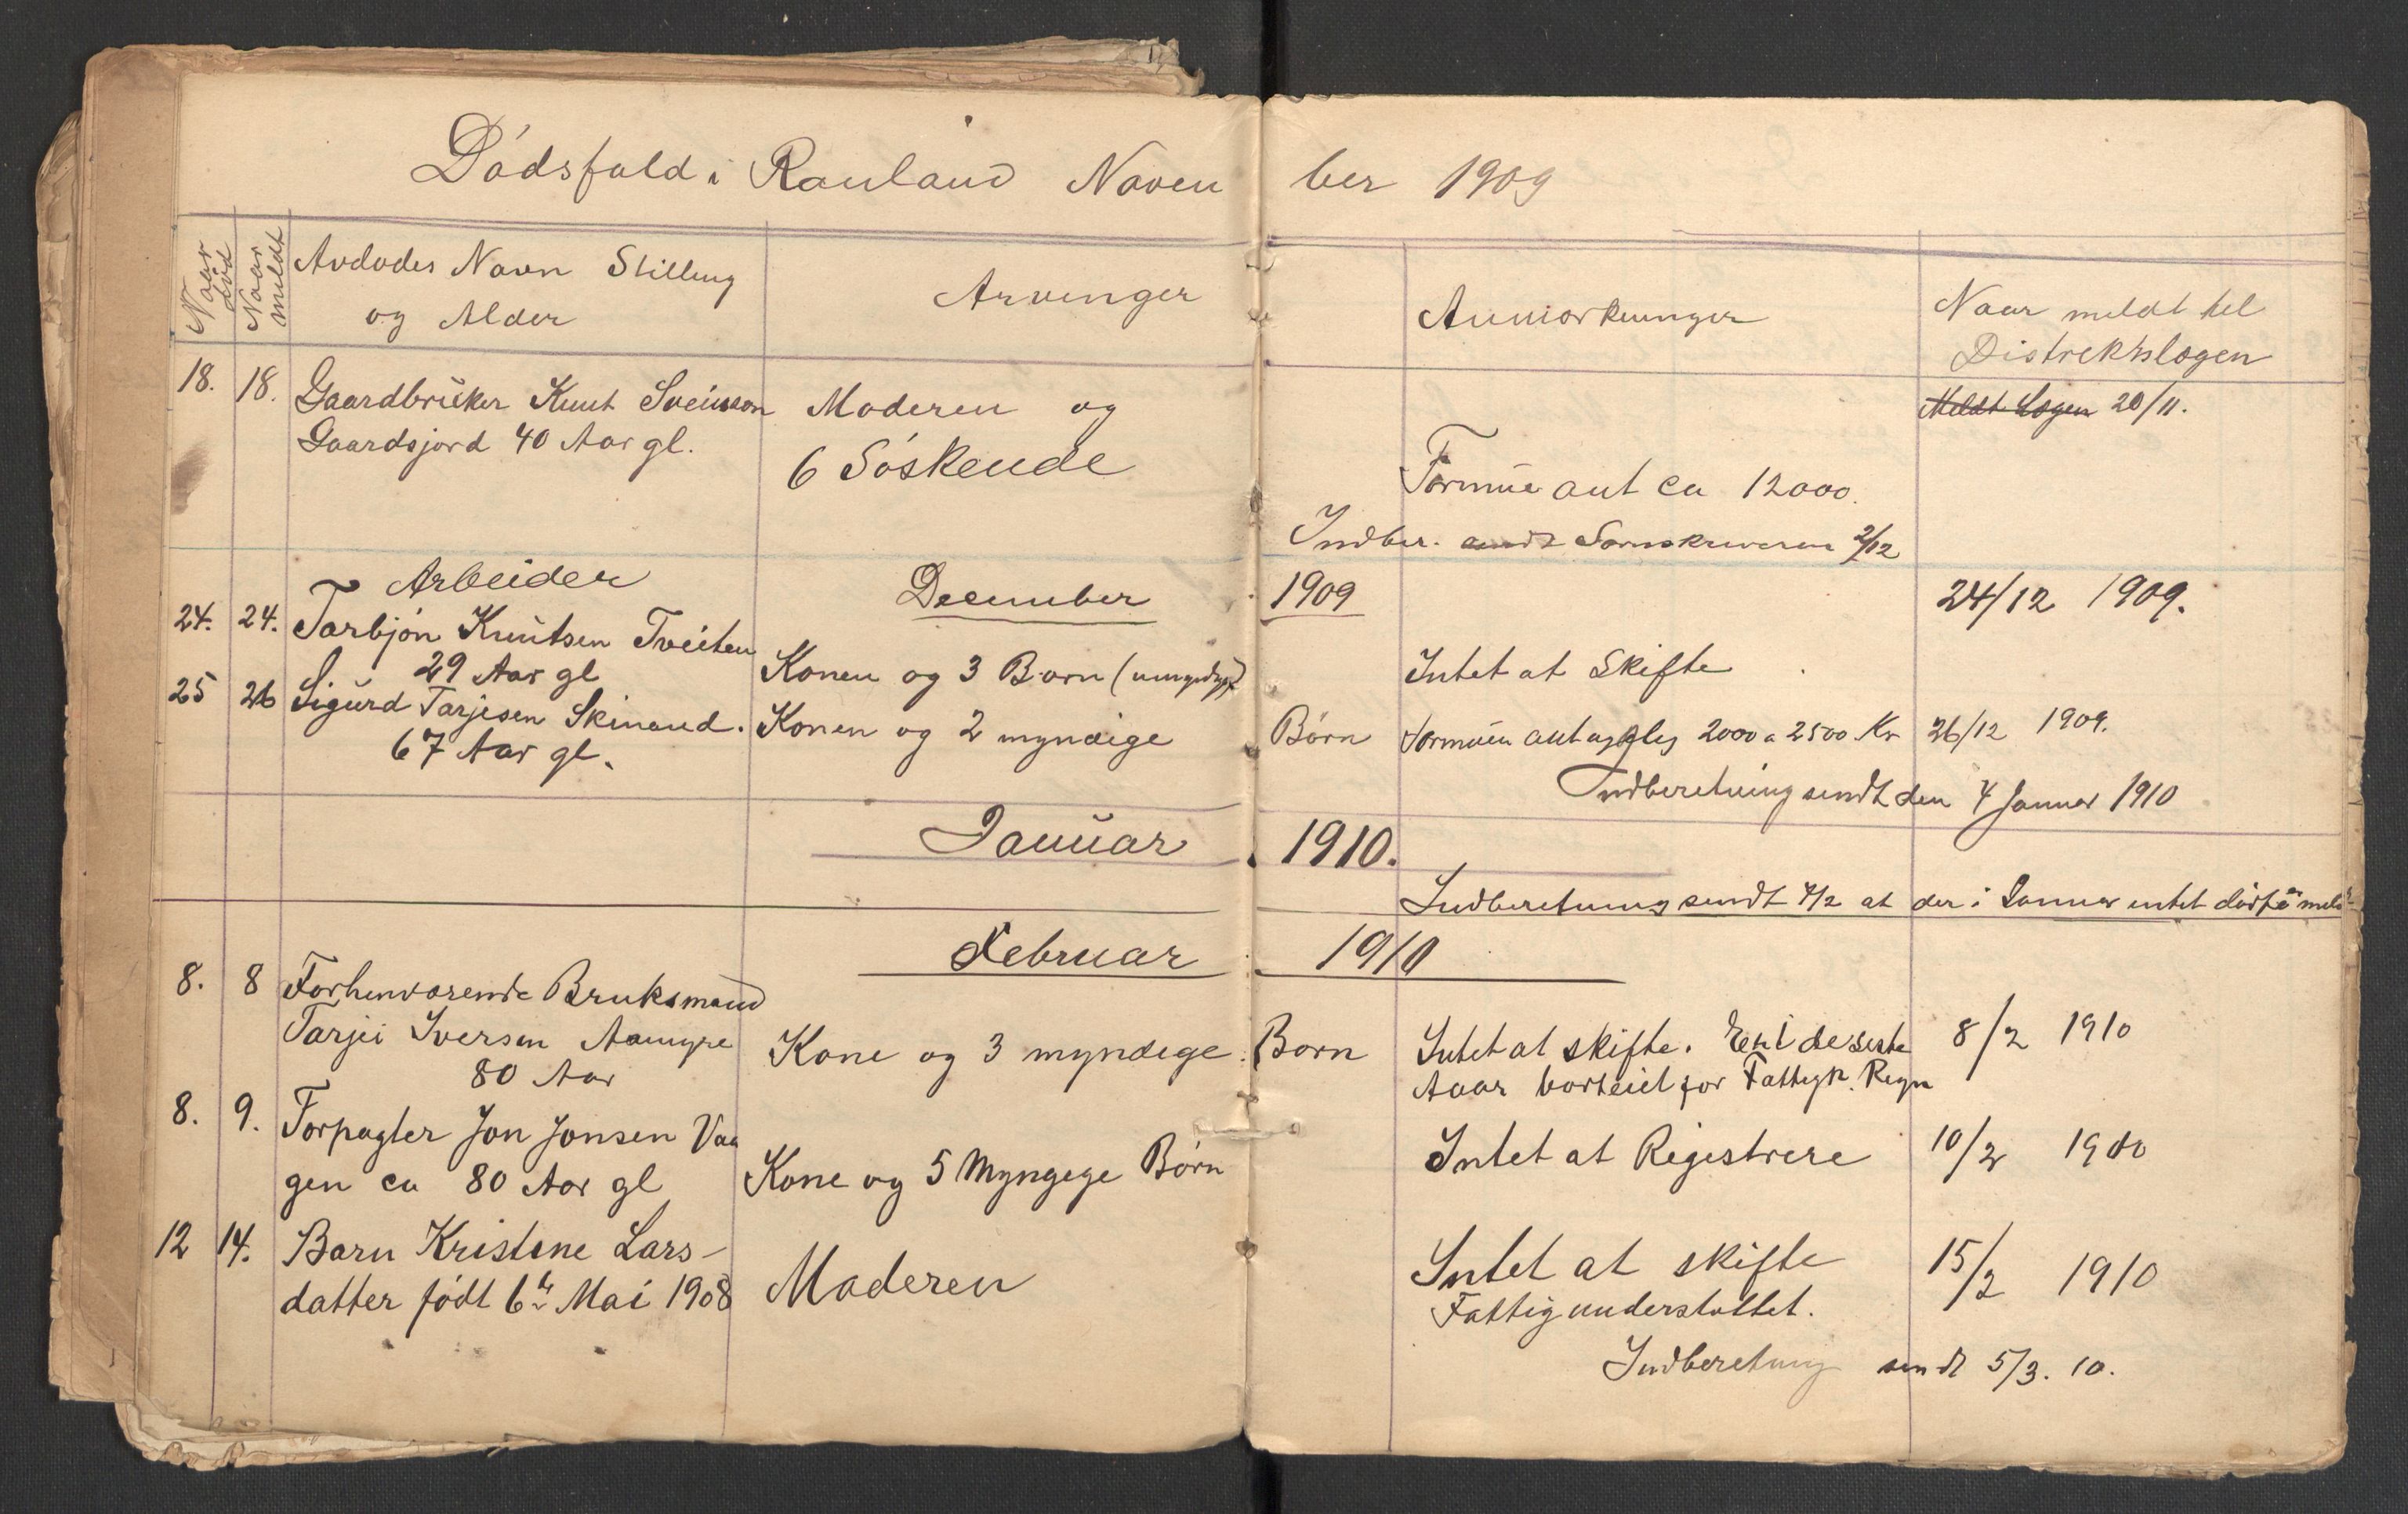 Dódsfald i Rauland Noven ber 1909
Naar död
Naar meldt
Avdødes Navn Stilling
og Alder
Arvinger
Anmærkninger
Naar meldt til
Distriktslægen
18. 18. Gaardbrüker Knut Sveinson Moderen og
Meldt Lægen 20/11.
Gaardsjord 40 Aar gl. 6 Sóskende
Formüe ant ca 12000.
Indber. sendt Sornskriveren 2/12
Arbeider December 1909 24/12 1909.
24. 24. Tarbjón Knütsen Tveiten
29 Aar gl Konen og 3 Born (umyndige) Intet at Skifte
25 26 Sigürd Tarjesen Skinand. Konen og 2 myndige Börn Formüen 2000 a 2500 Kr 26/12 1909.
67 Aar gl.
Indberetning sendt den 4 Januar 1910
Janüar 1910.
Indberetning sendt 4/2 at der i Januar intet meldt
Februar 1910
8. 8 Forhenværende Bruksmand
Tarjei Iversen Aamyre Kone og 3 myndige Born Intet at skifte. i de siste 8/2 1910
80 Aar
Aaar for Fattigk. Regn
8. 9. Forpagter Jon Jonsen Vaa
gen ca 80 Aar gl Kone og 5 Myngege Börn Intet at Registrere 10/2 1910
12 14. Barn Kristine Lars-
datter födt 6te Mai 1908 Moderen Intet at skifte 15/2 1910
Fattigunderstøttet.
Indberetning sendt 5/3. 10.